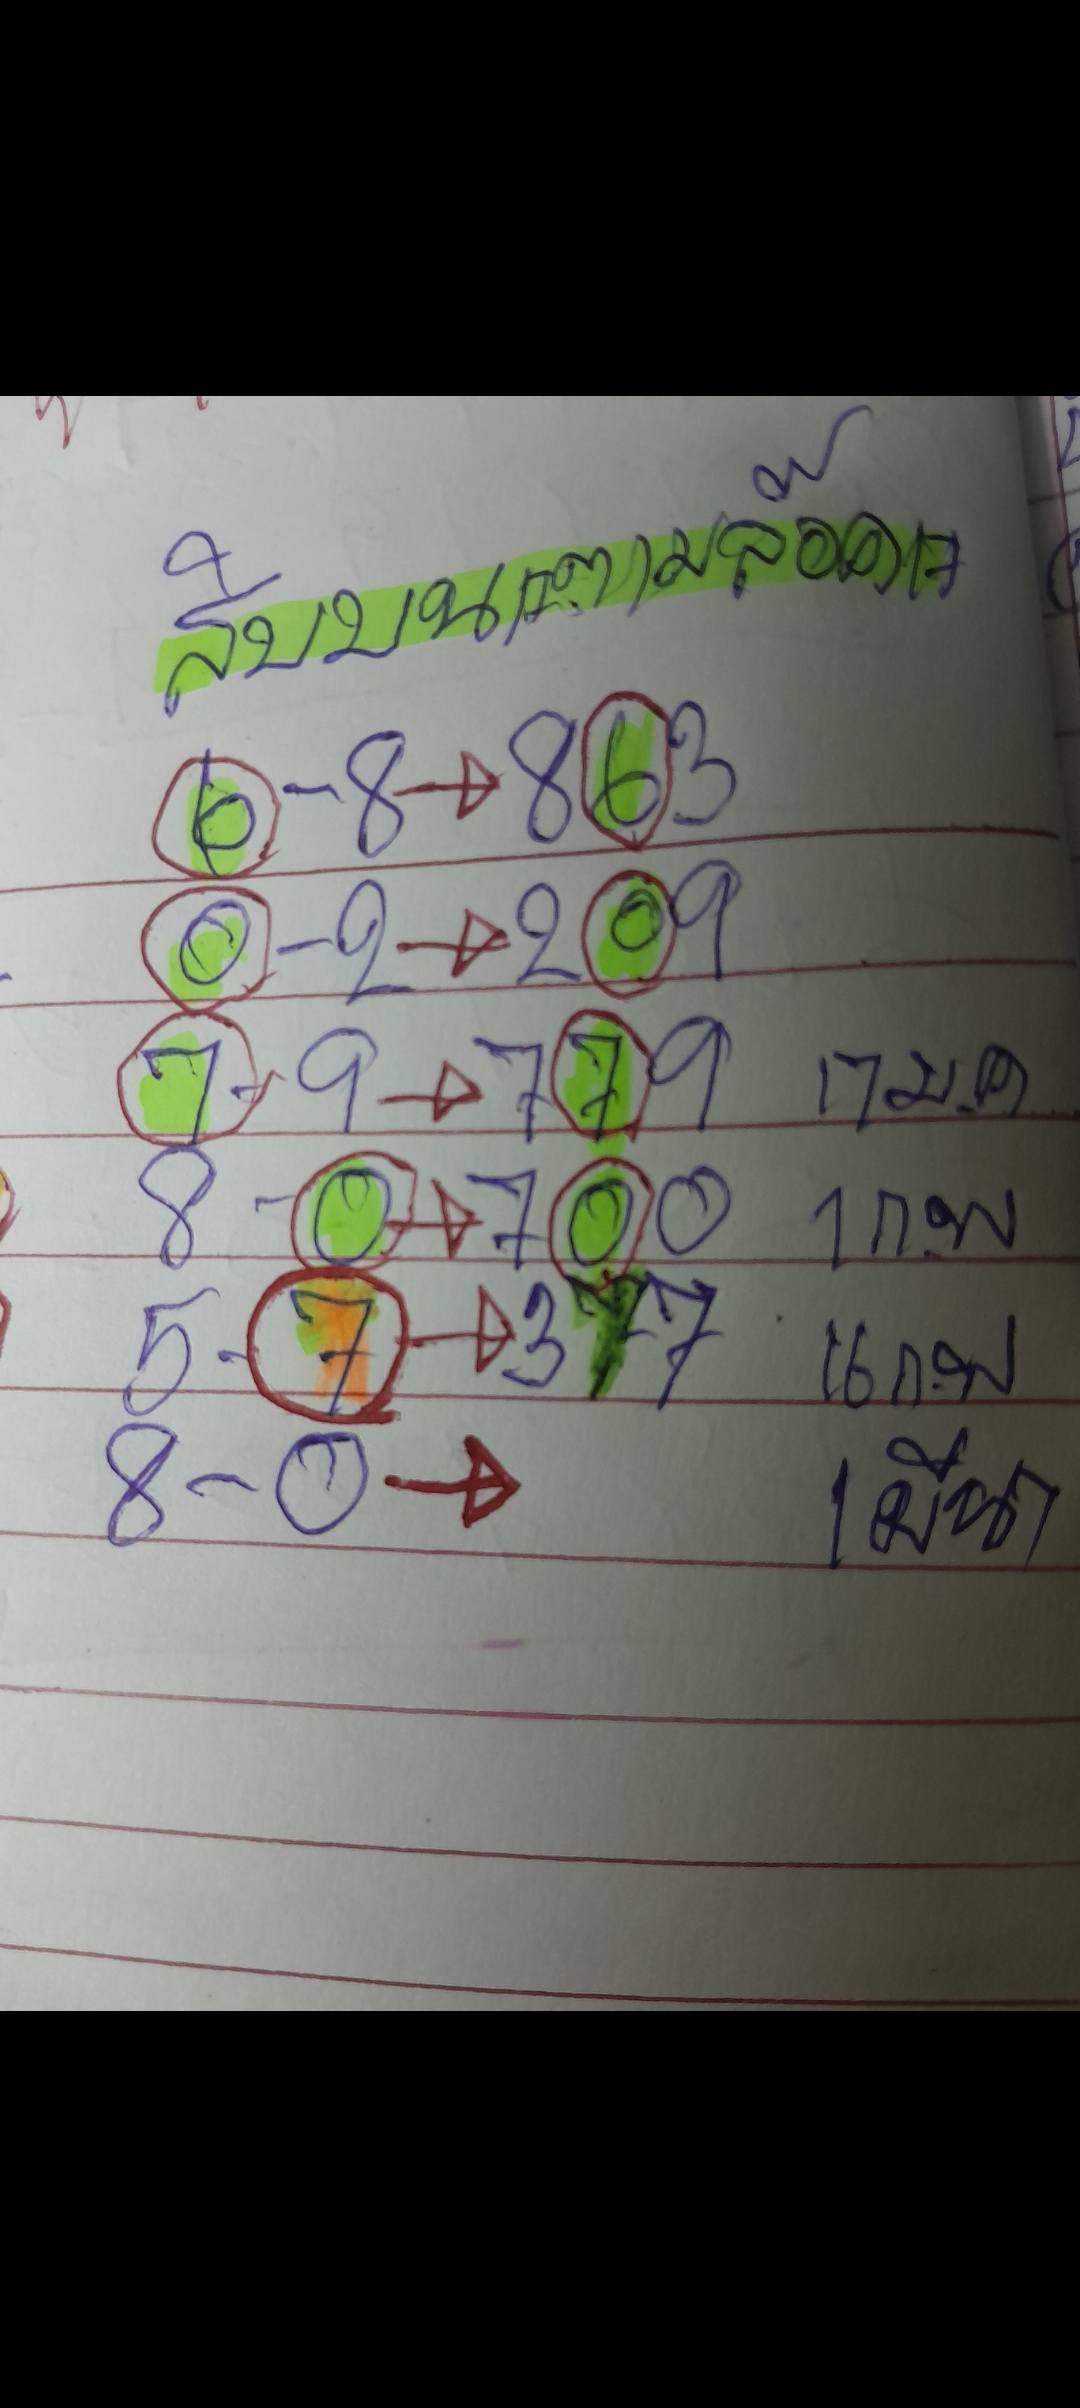 สิบบนตามล๊อค
6-8→863
0-2→209
7-9→779 17 ม.ค
8-0→700 1 ก.พ
5-7→377 16 ก.พ
8-0→ 1 มีนา